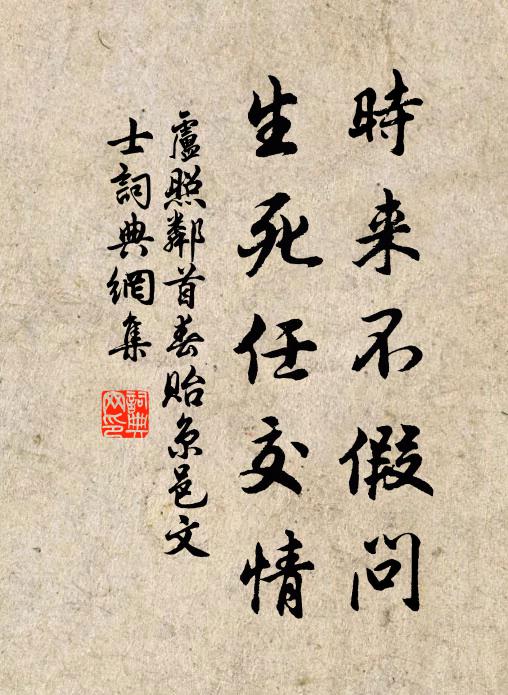 時来不假問
生死任交情
盧照鄰首春貽京邑文
士詞典網集
詞典網印